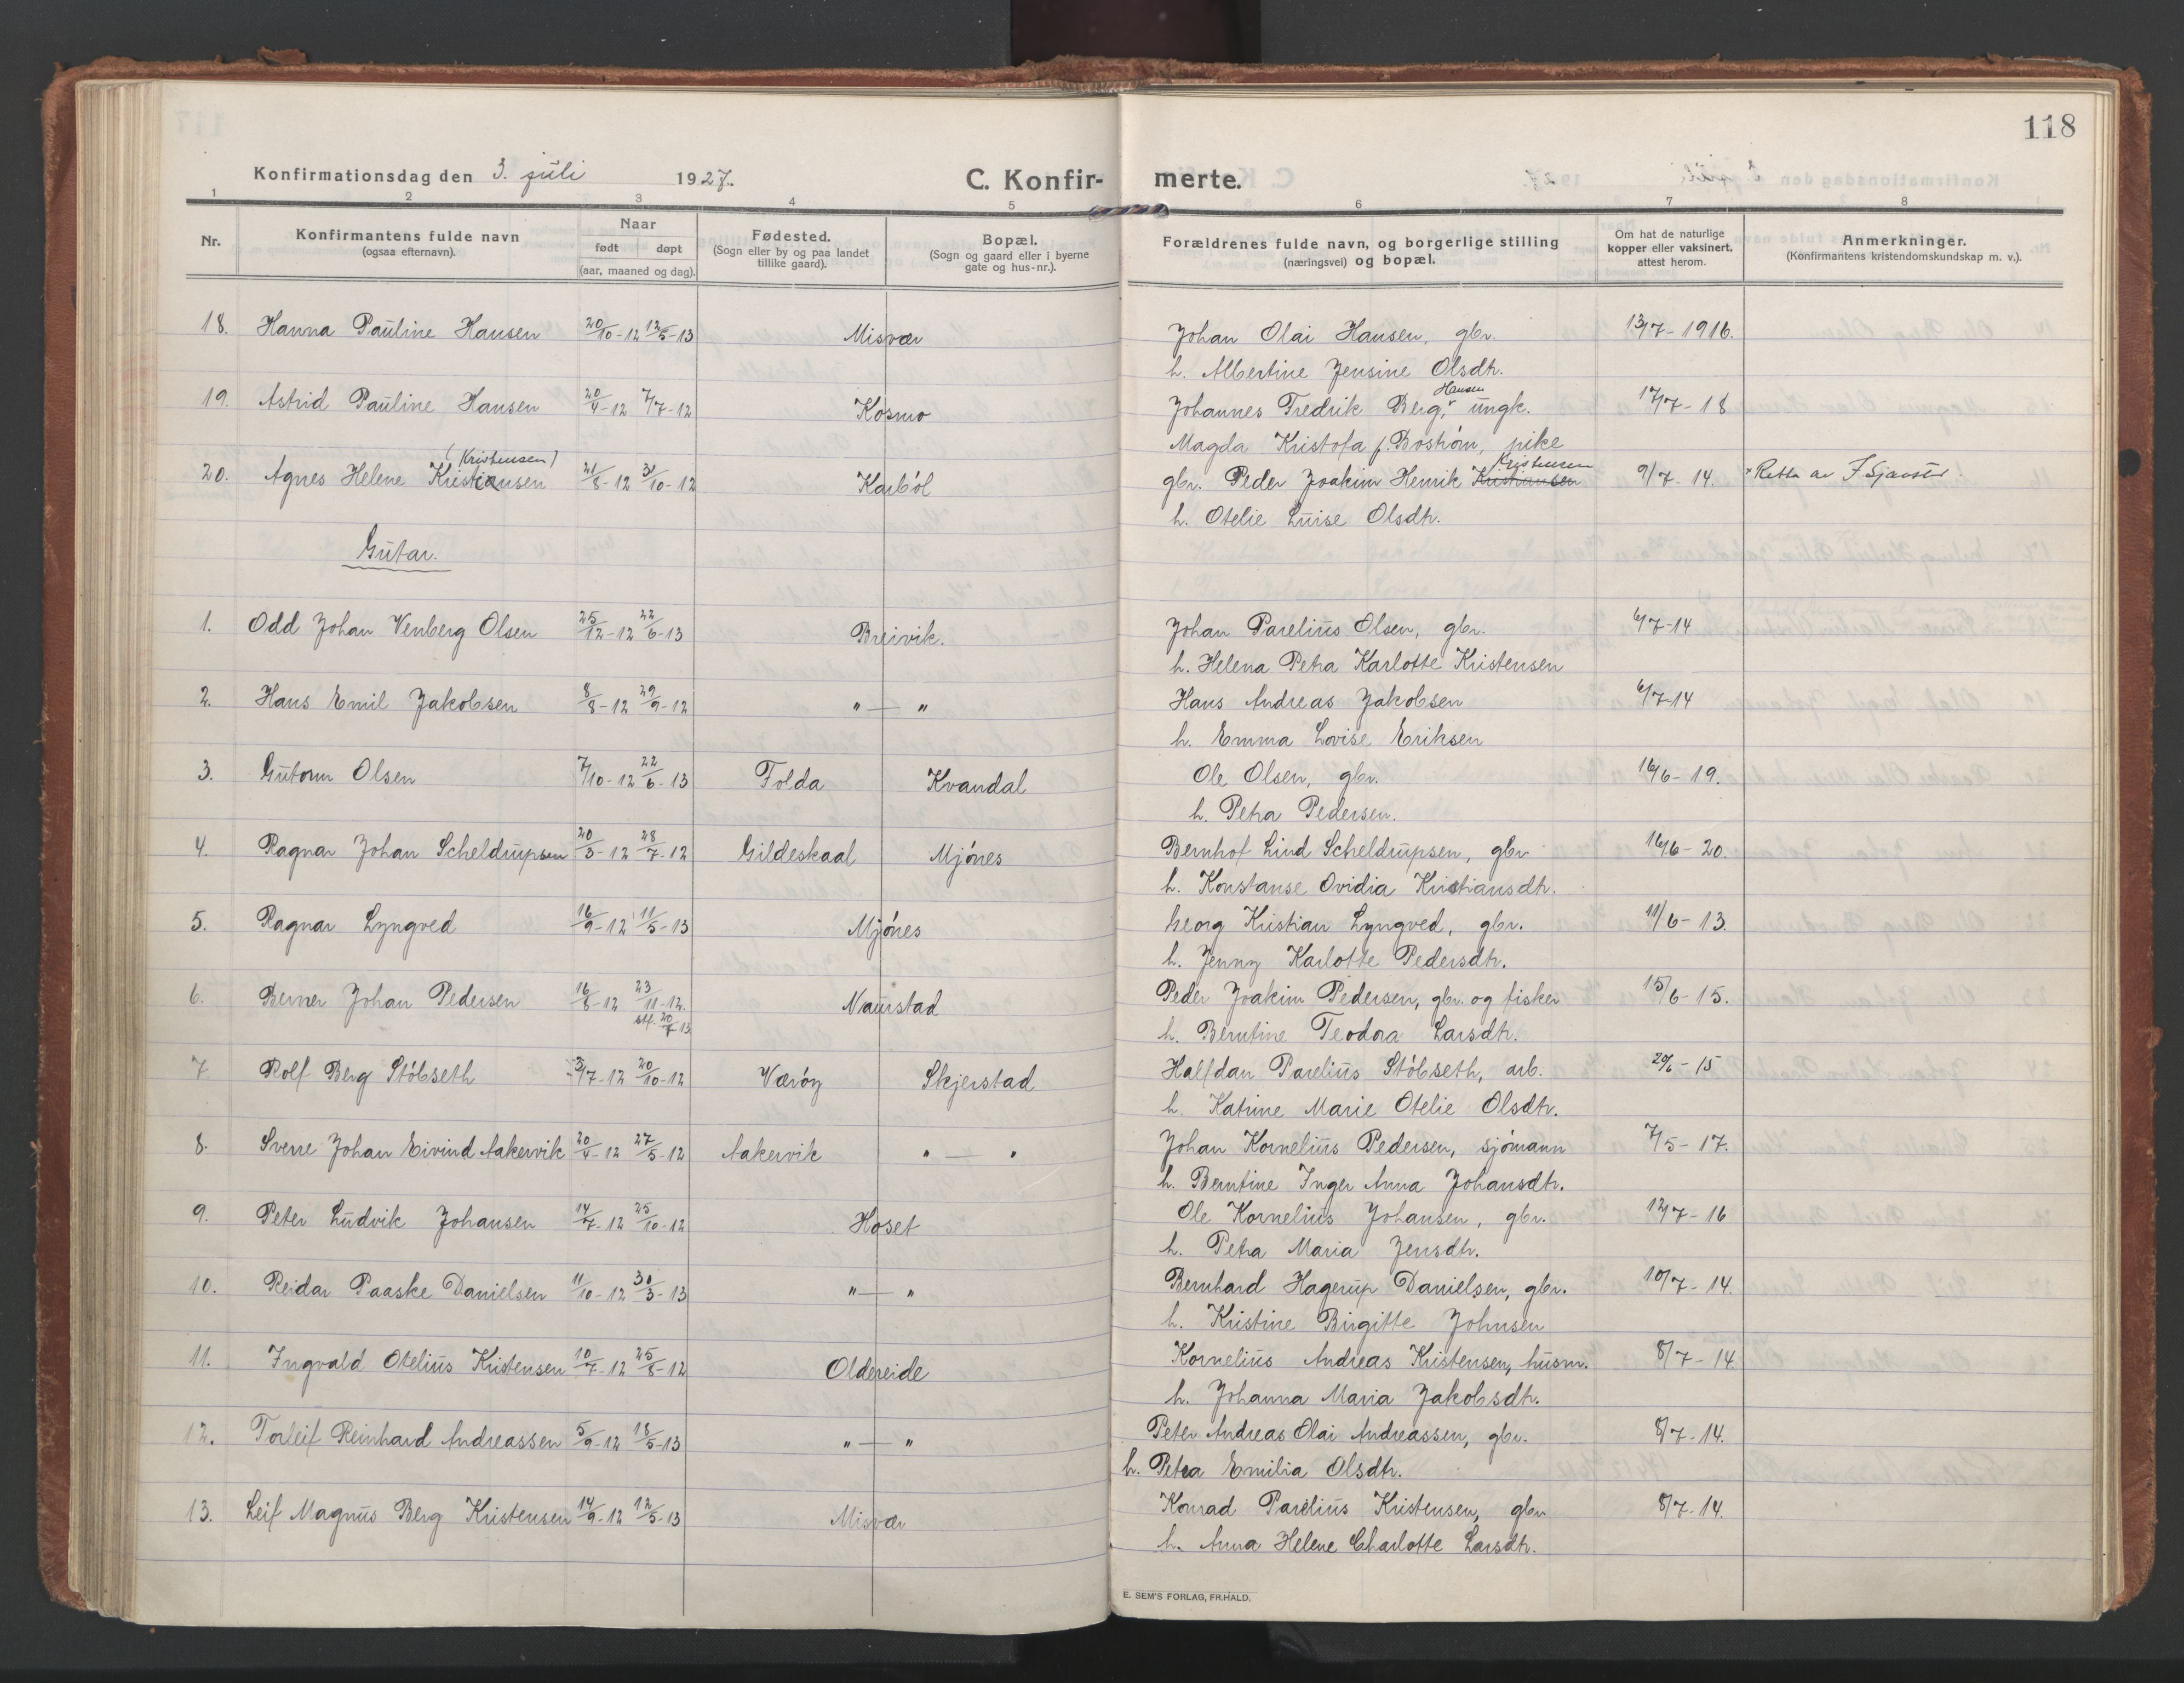 118
Konfirmationsdag den 3. juli 1927. C. Konfir- merte.
1 2 3 4 5 6 7 8
Nr. Konfirmantens fulde navn (ogsaa efternavn). Naar født døpt (aar, maaned og dag). Fødested. (Sogn eller by og paa landet tillike gaard). Bopæl. (Sogn og gaard eller i byerne gate og hus-nr.). Forældrenes fulde navn, og borgerlige stilling (næringsvei) og bopæl. Om hat de naturlige kopper eller vaksinert, attest herom. Anmerkninger. (Konfirmantens kristendomskundskap m. v.).
18. Hanna Pauline Hansen 20/10-12 12/5-13 Misvær Johan Olai Hansen, gbr. 13/7-1916.
h. Albertine Jensine Olsdtr.
19. Astrid Pauline Hansen 20/4-12 7/7-12 Kosmo Johannes Fredrik Berg, Hansen ungk. 17/7-18
Magda Kristofa f. Boström, pike
20. Agnes Helene Kristiansen (Kristensen) 21/8-12 31/10-12 Karbøl gbr. Peder Joakim Henrik Kristiansen Kristensen 9/7-14. Retta av
h. Otelie Luise Olsdtr.
Gutar.
1. Odd Johan Wenberg Olsen 25/12-12 22/6-13 Breivik. Johan Parelius Olsen, gbr. 6/7-14
h. Helena Petra Karlotte Kristensen
2. Hans Emil Jakobsen 8/8-12 29/9-12 " — " Hans Andreas Jakobsen 6/7-14
h. Emma Lovise Eriksen
3. Gutorm Olsen 7/10-12 22/6-13 Folda Kvandal Ole Olsen, gbr. 16/6-19.
h. Petra Pedersen.
4. Ragnar Johan Scheldrupsen 20/3-12 28/7-12 Gildeskaal Mjónes Bernhof Lind Scheldrupsen, gbr 16/6-20.
h. Konstanse Ovidia Kristiansdtr.
5. Ragnar Lyngved 16/9-12 11/5-13 Mjónes Georg Kristian Lyngved, gbr. 11/6-13.
h. Jenny Karlotte Pedersdtr.
6. Berner Johan Pedersen 16/8-12 23/11-12. stf. 20/7-13 Naurstad Peder Joakim Pedersen, gbr. og fisker 15/6-15.
h. Berntine Teodora Larsdtr.
7 Rolf Berg Stóbseth 3/7-12 20/10-12 Værøy Skjerstad Halfdan Parelius Stóbseth, arb. 29/6-15
h. Katrine Marie Otelie Olsdtr.
8. Sverre Johan Eivind Aakervik 20/4-12 27/5-12 Aakervik " — " Johan Kornelius Pedersen, sjómann 7/5-17.
h. Berntine Inger Anna Johansdtr.
9. Peter Ludvik Johansen 14/7-12 25/10-12 Hoset Ole Kornelius Johansen, gbr. 12/7-16
h. Petra Maria Jensdtr.
10. Reidar Paaske Danielsen 11/10-12 30/3-13 " — " Bernhard Hagerup Danielsen, gbr. 10/7-14.
h. Kristine Birgitte Johnsen
11. Ingvald Otelius Kristensen 10/7-12 25/8-12 Oldereide Kornelius Andreas Kristensen, husm. 8/7-14.
h. Johanna Maria Jakobsdtr.
12. Torleif Reinhard Andreassen 5/9-12 18/5-13 " — " Peter Andreas Olai Andreassen, gbr. 8/7-14.
h. Petra Emilia Olsdtr.
13. Leif Magnus Berg Kristensen 14/9-12 12/5-13 Misvær Konrad Parelius Kristensen, gbr 8/7-14.
h. Anna Helene Charlotte Larsdtr.
E. SEM'S FORLAG, FR.HALD.